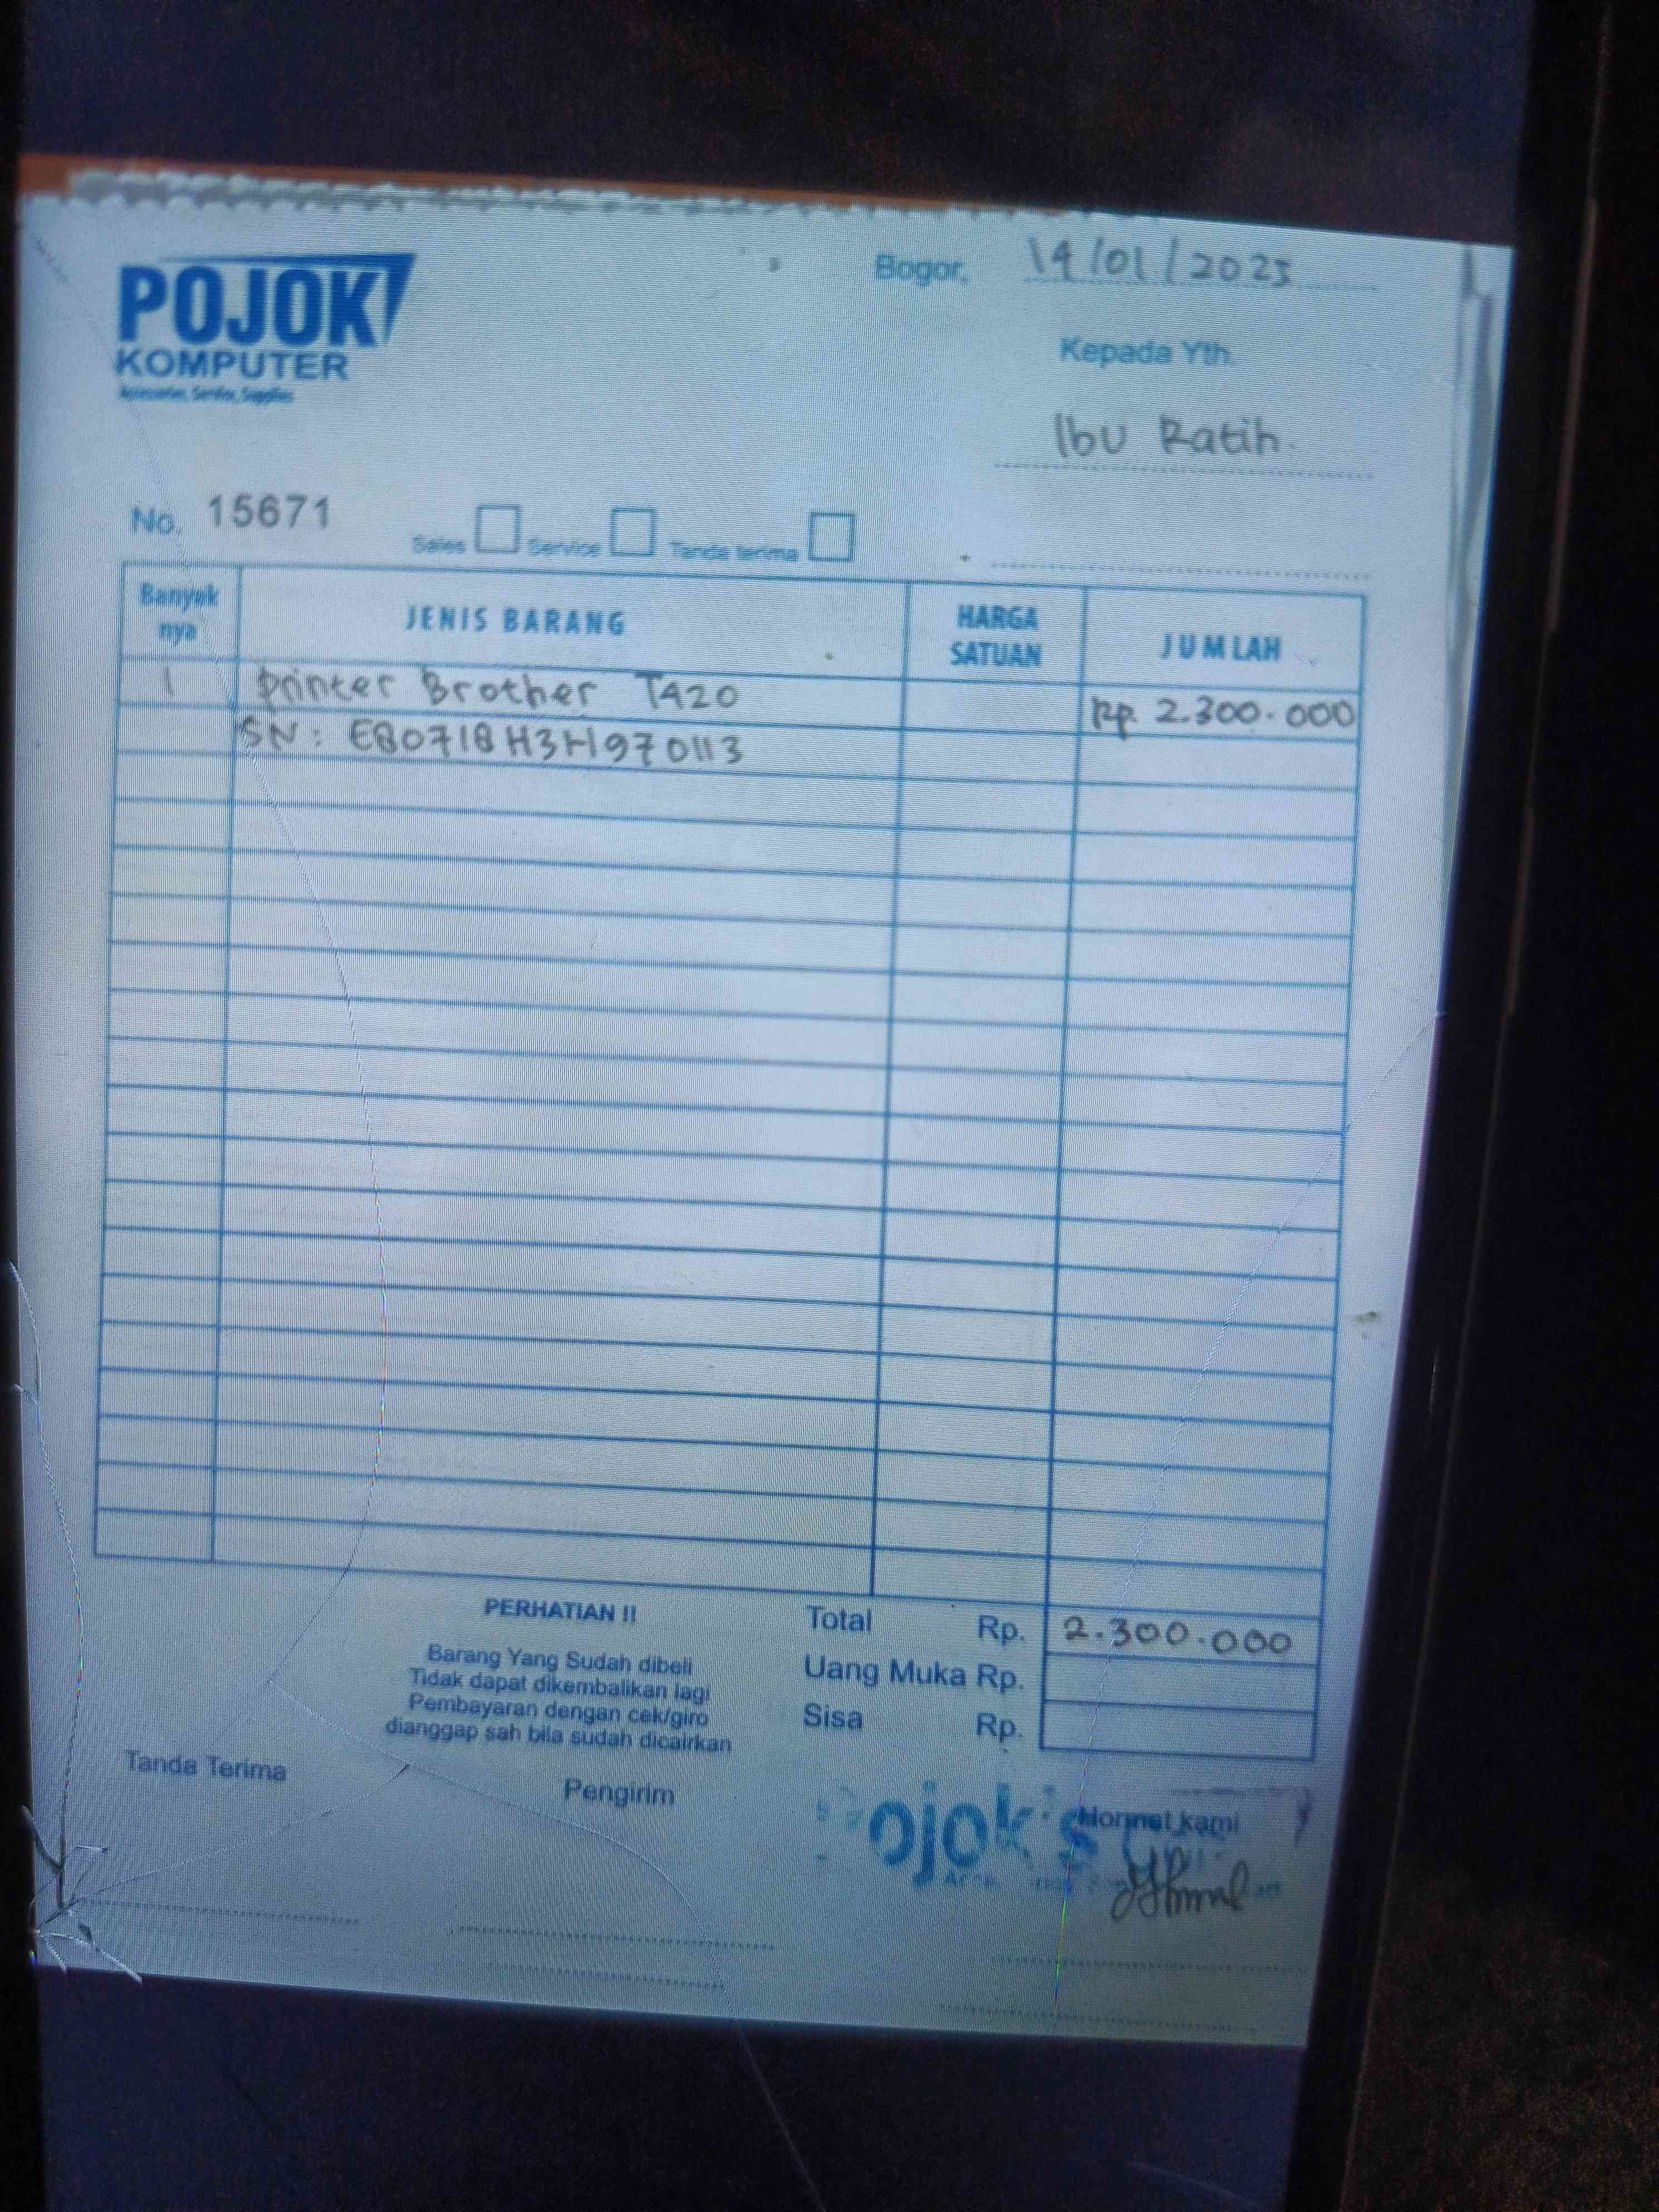 POJOK
KOMPUTER
Accessories, Service, Supplies
Bogor, 14/01/2025
Kepada Yth.
Ibu Ratih
No. 15671
Sales Service Tanda terima
Banyak nya JENIS BARANG HARGA SATUAN JUMLAH
1 printer Brother T420 Rp. 2.300.000
SN: E80718H3H970113
PERHATIAN !!
Barang Yang Sudah dibeli
Tidak dapat dikembalikan lagi
Pembayaran dengan cek/giro
dianggap sah bila sudah dicairkan
Total Rp. 2.300.000
Uang Muka Rp.
Sisa Rp.
Tanda Terima
Pengirim
Hormat kami